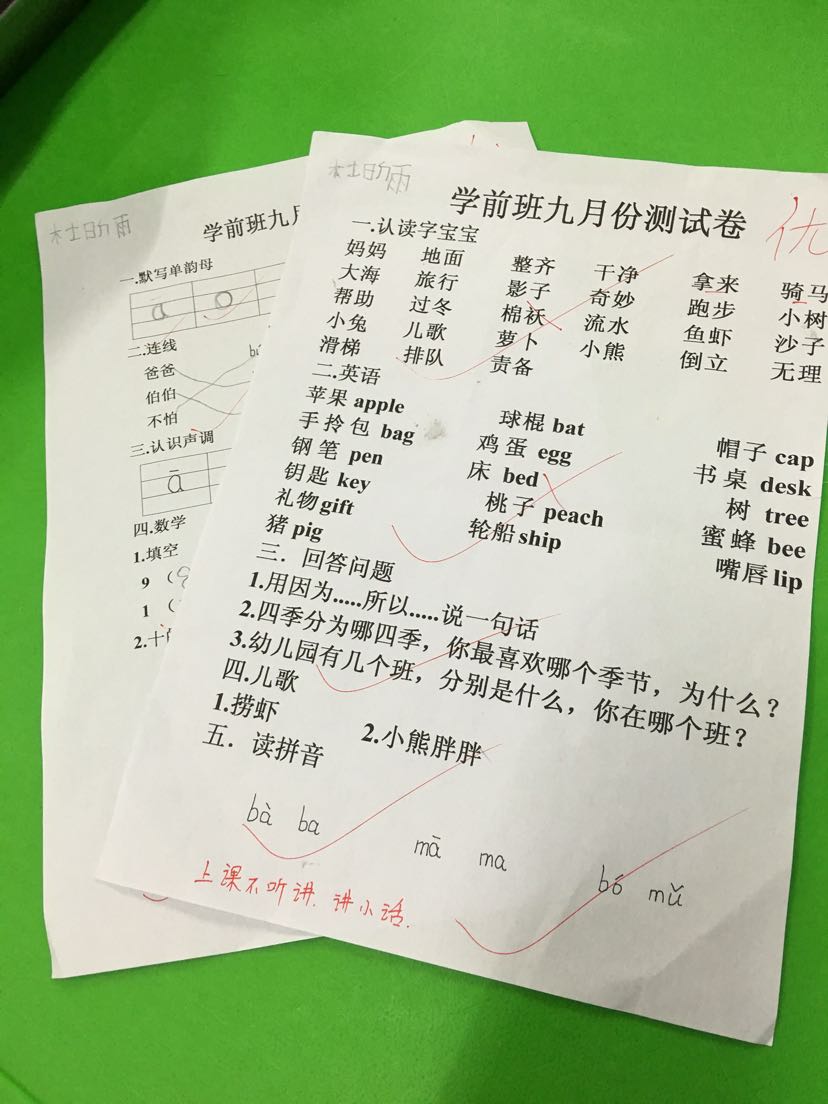 学前班九月份测试卷
优
一.认读字宝宝
妈妈 地面 整齐 干净 拿来 骑马
大海 旅行 影子 奇妙 跑步 小树
帮助 过冬 棉袄 流水 鱼虾 沙子
小兔 儿歌 萝卜 小熊 倒立 无理
滑梯 排队 责备
二.英语
苹果 apple 球棍 bat 帽子 cap
手拎包 bag 鸡蛋 egg 书桌 desk
钢笔 pen 床 bed 树 tree
钥匙 key 桃子 peach 蜜蜂 bee
礼物gift 轮船 ship 嘴唇 lip
猪 pig
三.回答问题
1.用因为.....所以.....说一句话
2.四季分为哪四季，你最喜欢哪个季节，为什么？
3.幼儿园有几个班，分别是什么，你在哪个班？
四.儿歌
1.捞虾 2.小熊胖胖
五.读拼音
bà ba mā ma bó mǔ
上课不听讲.讲小话.
学前班九月
一.默写单韵母
a o
二.连线
爸爸
伯伯
不怕
三.认识声调
ā
四.数学
1.填空
9 (9
1 (
2.十